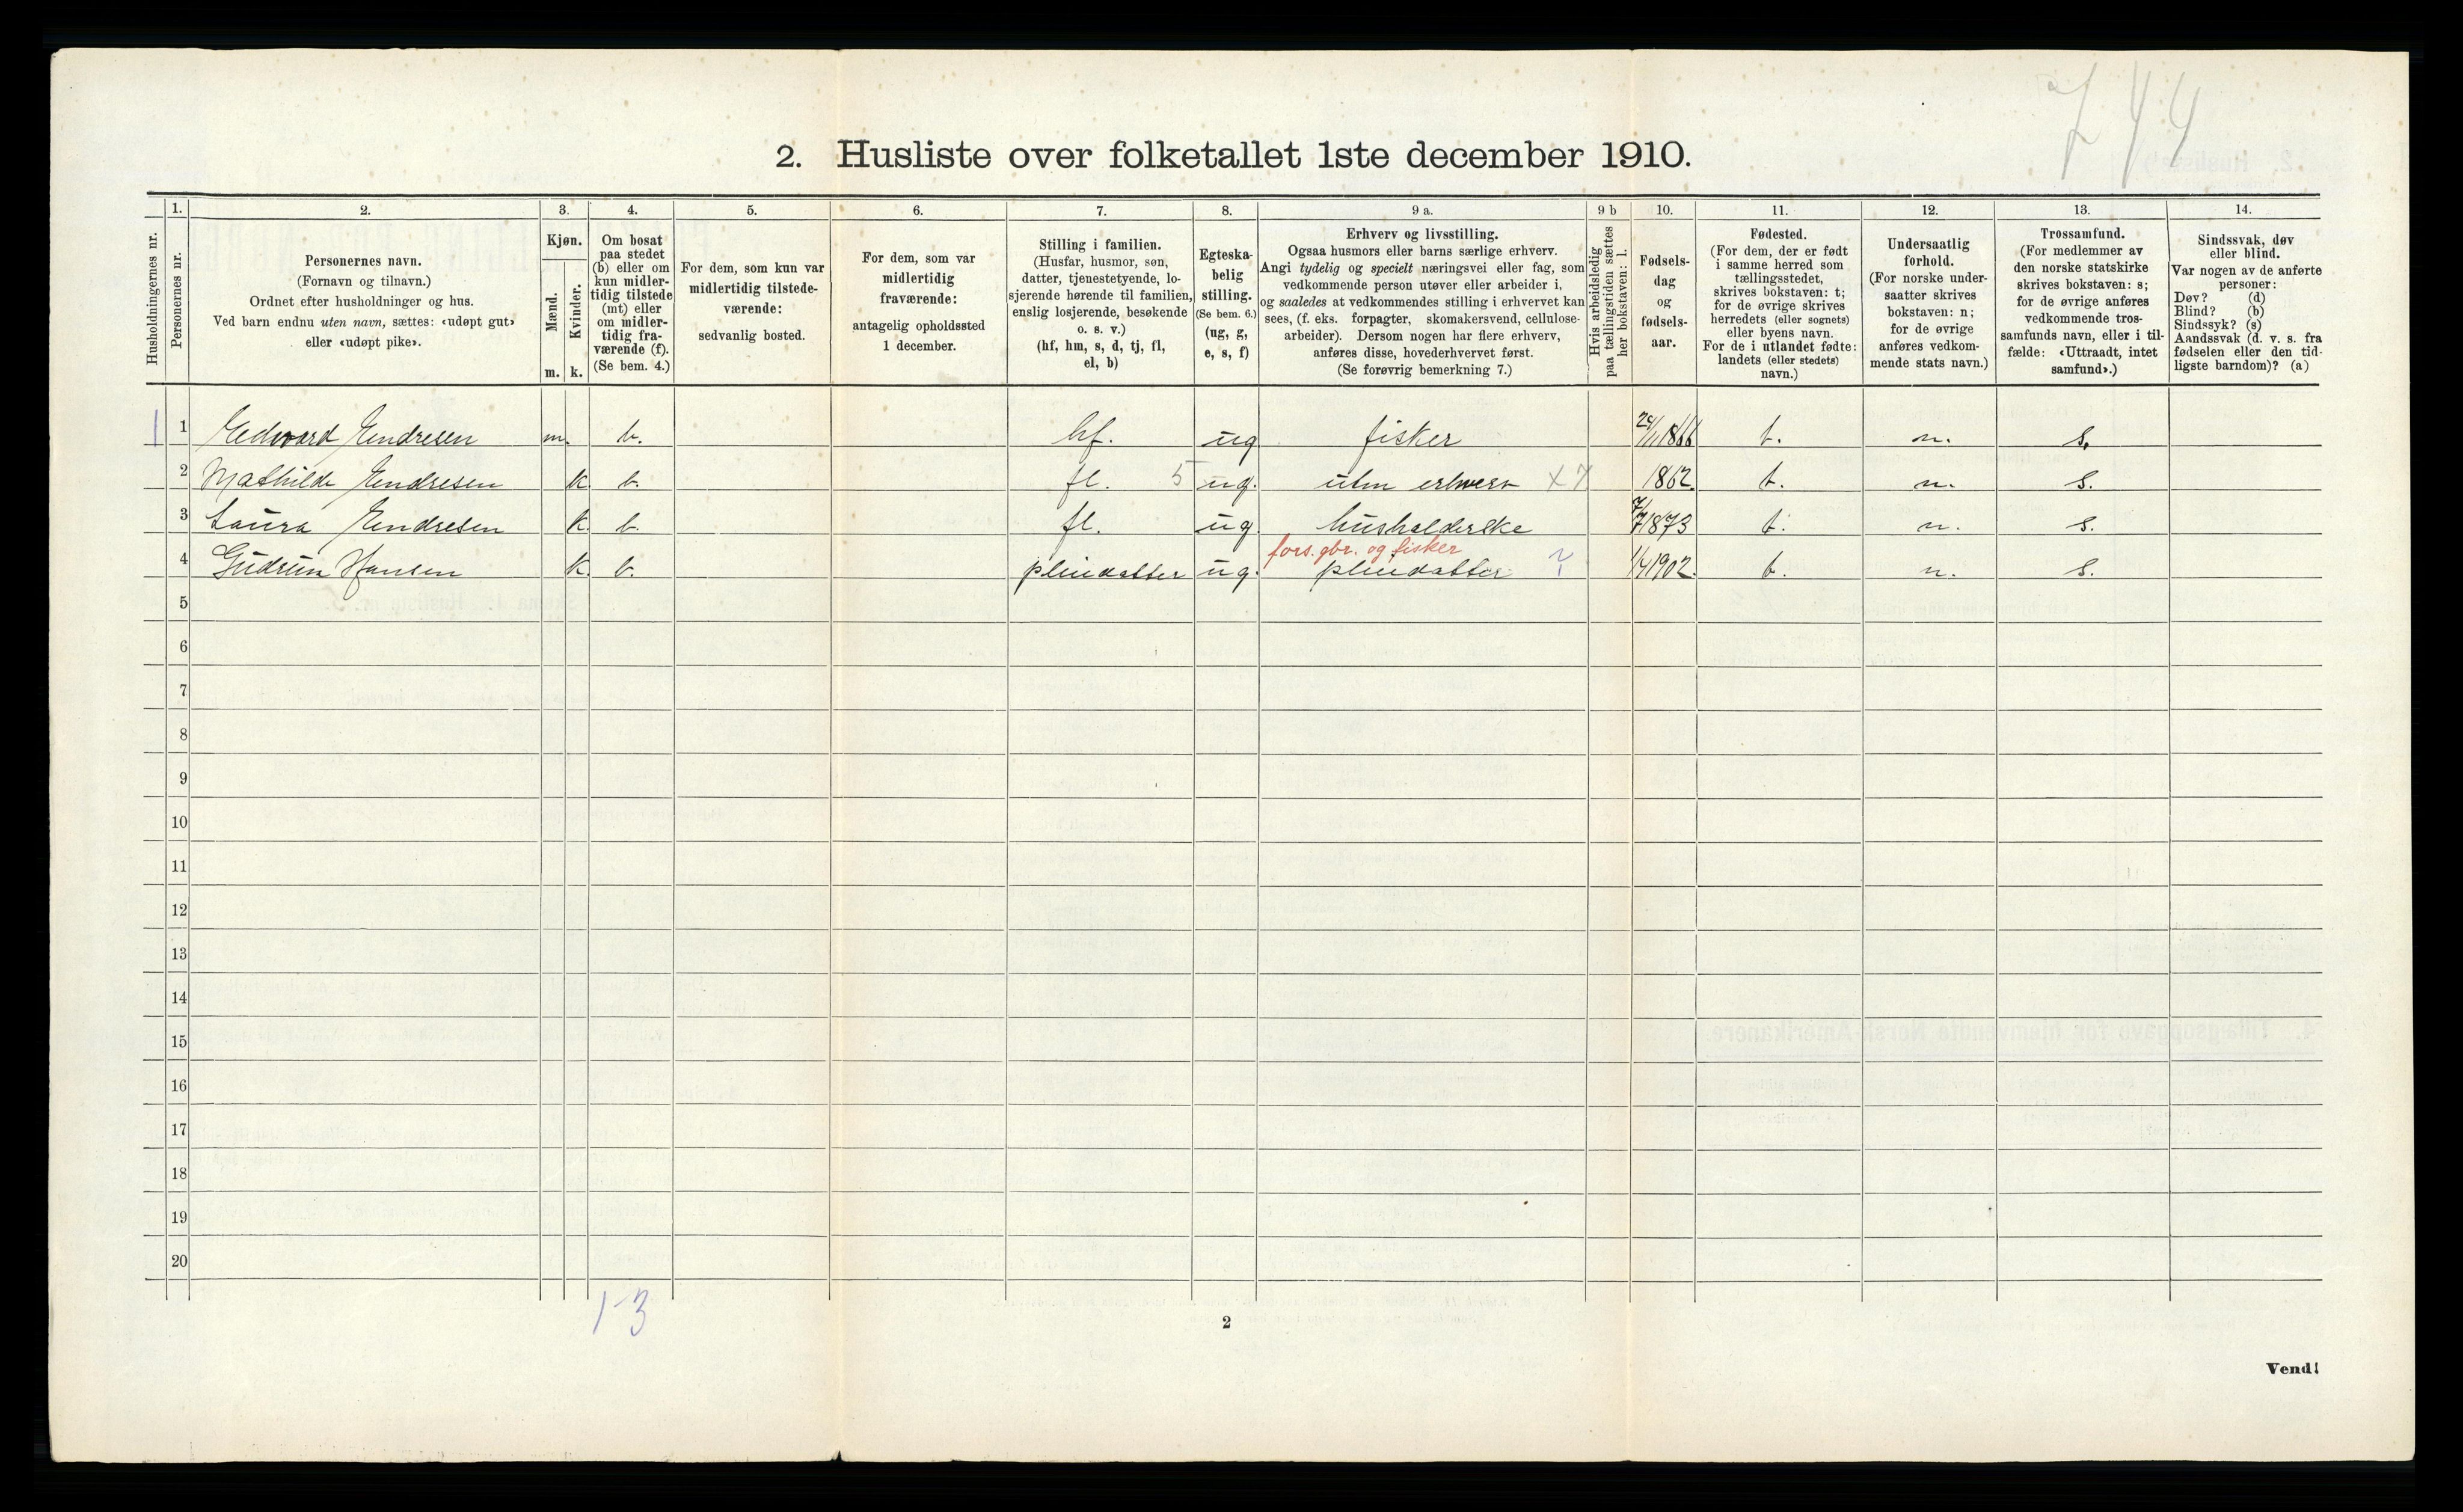 744
2. Husliste over folketallet 1ste december 1910.
Husholdningernes nr.
1.
Personernes nr.
2.
Personernes navn.
(Fornavn og tilnavn.)
Ordnet efter husholdninger og hus.
Ved barn endnu uten navn, sættes: «udøpt gut»
eller «udøpt pike».
3.
Kjøn.
Mænd.
Kvinder.
m. k.
4.
Om bosat
paa stedet
(b) eller om
kun midler-
tidig tilstede
(mt) eller
om midler-
tidig fra-
værende (f).
(Se bem. 4.)
5.
For dem, som kun var
midlertidig tilstede-
værende:
sedvanlig bosted.
6.
For dem, som var
midlertidig
fraværende:
antagelig opholdssted
1 december.
7.
Stilling i familien.
(Husfar, husmor, søn,
datter, tjenestetyende, lo-
sjerende hørende til familien,
enslig losjerende, besøkende
o. s. v.)
(hf, hm, s, d, tj, fl,
el, b)
8.
Egteska-
belig
stilling.
(Se bem. 6.)
(ug, g,
e, s, f)
9 a.
Erhverv og livsstilling.
Ogsaa husmors eller barns særlige erhverv.
Angi tydelig og specielt næringsvei eller fag, som
vedkommende person utøver eller arbeider i,
og saaledes at vedkommendes stilling i erhvervet kan
sees, (f. eks. forpagter, skomakersvend, cellulose-
arbeider). Dersom nogen har flere erhverv,
anføres disse, hovederhvervet først.
(Se forøvrig bemerkning 7.)
9 b
Hvis arbeidsledig
paa tællingstiden sættes
her bokstaven: l.
10.
Fødsels-
dag
og
fødsels-
aar.
11.
Fødested.
(For dem, der er født
i samme herred som
tællingsstedet,
skrives bokstaven: t;
for de øvrige skrives
herredets (eller sognets)
eller byens navn.
For de i utlandet fødte:
landets (eller stedets)
navn.)
12.
Undersaatlig
forhold.
(For norske under-
saatter skrives
bokstaven: n;
for de øvrige
anføres vedkom-
mende stats navn.)
13.
Trossamfund.
(For medlemmer av
den norske statskirke
skrives bokstaven: s;
for de øvrige anføres
vedkommende tros-
samfunds navn, eller i til-
fælde: «Uttraadt, intet
samfund».)
14.
Sindssvak, døv
eller blind.
Var nogen av de anførte
personer:
Døv? (d)
Blind? (b)
Sindssyk? (s)
Aandssvak (d. v. s. fra
fødselen eller den tid-
ligste barndom)? (a)
1 1 Edvard Endresen m. b. hf. ug fisker 1866 t. n. s.
2 Mathilde Endresen k. b. fl. 5 ug. uten erhverv x 7 1862 t. n. s.
3 Laura Endresen k. b. fl. ug. husholderske 7/7 1873 t. n. s.
fors. gbr. og fisker
4 Gudrun Hansen k. b. pleiedatter ug. pleiedatter 1/4 1902. t. n. s.
5
6
7
8
9
10
11
12
13
14
15
16
17
18
19
20
1-3
2
Vend!